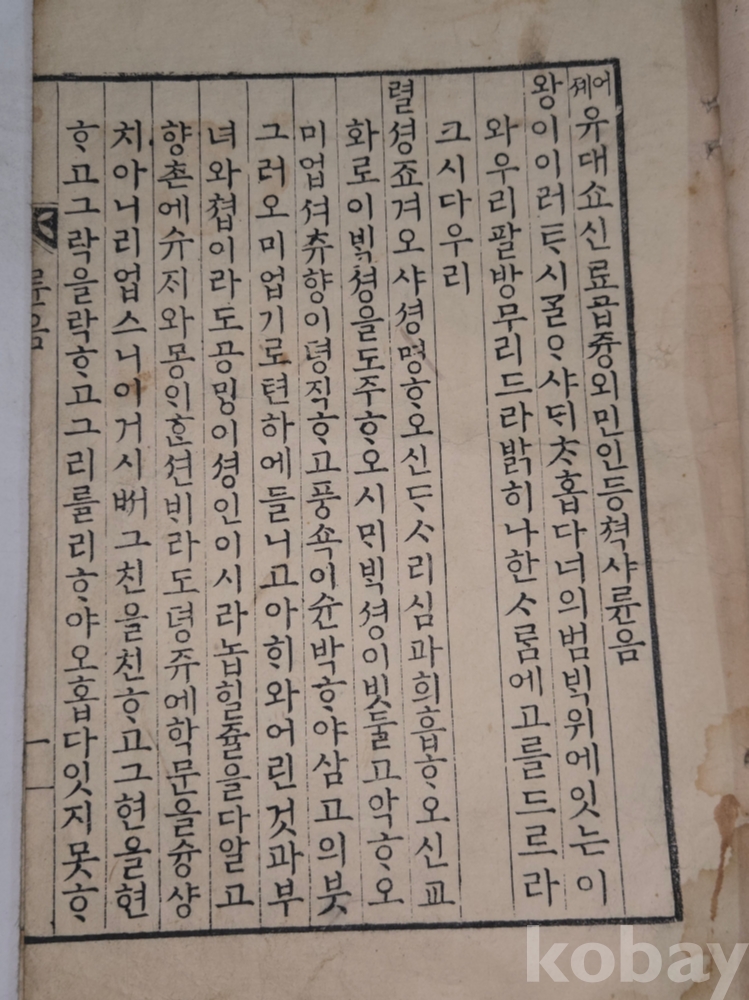 어졔유대쇼신료급즁외민인등쳑샤륜음
왕이이러ᄐᆞ시ᄀᆞᆯᄋᆞ샤ᄃᆡ츠홉다너의범ᄇᆡᆨ위에잇는이
와우리팔방무리드라ᄇᆞᆰ히나한사ᄅᆞᆷ에고를드르라
크시다우리
렬셩죠겨오샤셩명ᄒᆞ오신ᄃᆞᄉᆞ리심과희흡ᄒᆞ오신교
화로이ᄇᆡᆨ셩을도주ᄒᆞ오시ᄆᆡᄇᆡᆨ셩이빗둘고악ᄒᆞ오
미업셔츄향이뎡직ᄒᆞ고풍쇽이슌박ᄒᆞ야삼고의븟
그러오미업기로텬하에들니고아ᄒᆡ와어린것과부
녀와쳡이라도공ᄆᆡᆼ이셩인이시라놉힐쥴을다알고
향촌에슈ᄌᆡ와몽ᄆᆡᄒᆞᆫ션ᄇᆡ라도뎡쥬에학문을슝샹
치아니리업스니이거시ᄡᅥ그친을친ᄒᆞ고그현을현
ᄒᆞ고그락을락ᄒᆞ고그리를리ᄒᆞ야오홉다잇지못ᄒᆞ
륜음
一
kobay